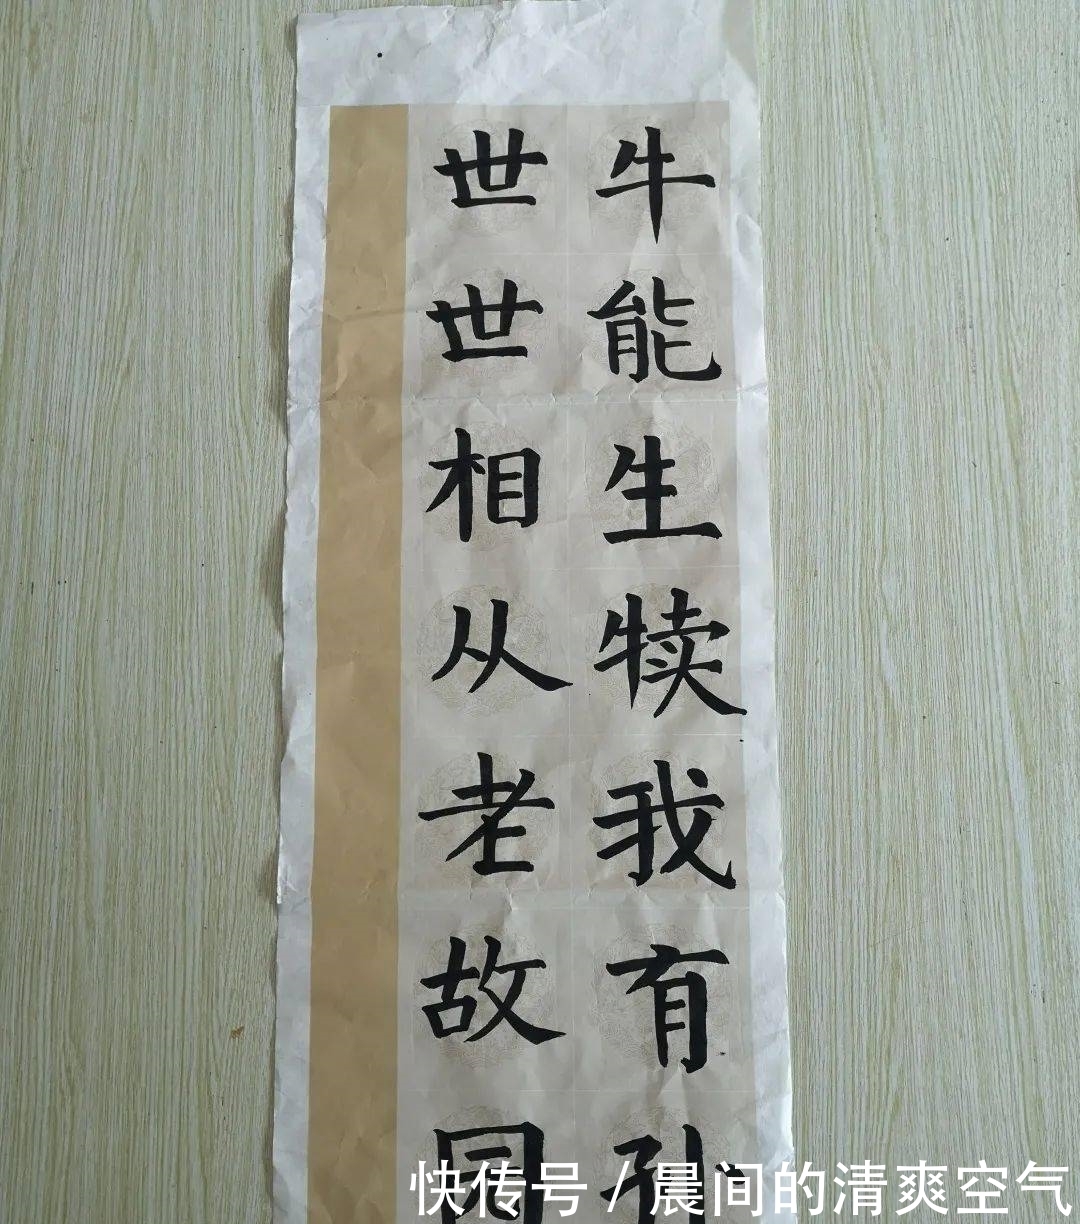 牛能生犊我有孙
世世相从老故园
快传号／晨间的清爽空气